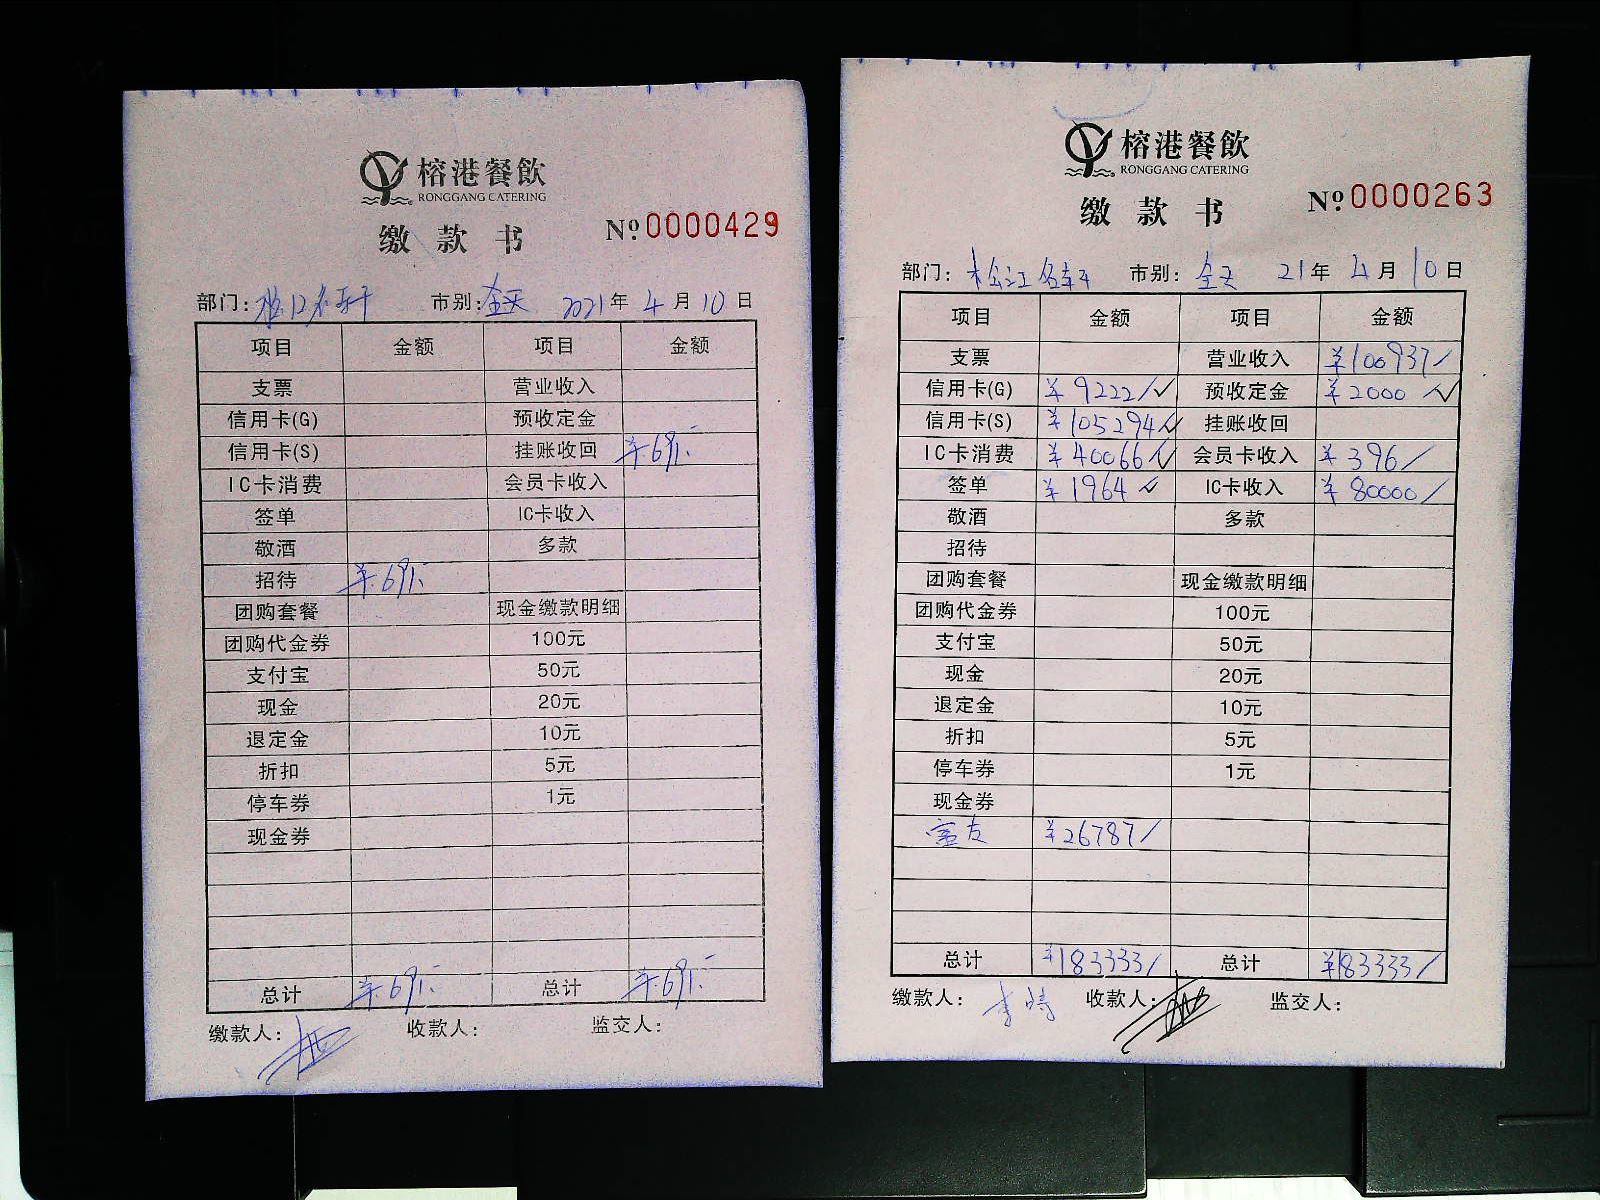 榕港餐飲
RONGGANG CATERING
缴 款 书
Nº 0000429
部门: 市别: 全天 2021年 4月 10日
项目 金额 项目 金额
支票 营业收入
信用卡(G) 预收定金
信用卡(S) 挂账收回 ¥691.-
IC卡消费 会员卡收入
签单 IC卡收入
敬酒 多款
招待 ¥691.-
团购套餐 现金缴款明细
团购代金券 100元
支付宝 50元
现金 20元
退定金 10元
折扣 5元
停车券 1元
现金券
总计 ¥691.- 总计 ¥691.-
缴款人: 收款人: 监交人:
榕港餐飲
RONGGANG CATERING
缴 款 书
Nº 0000263
部门: 松江名轩 市别: 全天 21年 4月 10日
项目 金额 项目 金额
支票 营业收入 ¥100937/
信用卡(G) ¥9222/✓ 预收定金 ¥2000 ✓
信用卡(S) ¥105294✓ 挂账收回
IC卡消费 ¥40066/✓ 会员卡收入 ¥396/
签单 ¥1964✓ IC卡收入 ¥80000/
敬酒 多款
招待
团购套餐 现金缴款明细
团购代金券 100元
支付宝 50元
现金 20元
退定金 10元
折扣 5元
停车券 1元
现金券
富友 ¥26787/
总计 ¥183333/ 总计 ¥183333/
缴款人: 收款人: 监交人: